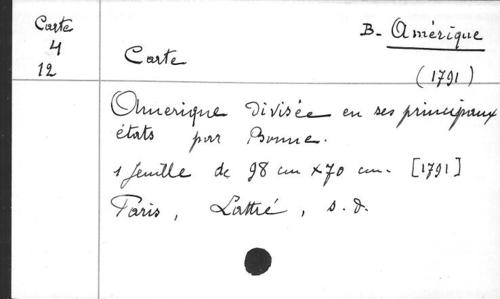 Carte
4
12
B - Amérique
Carte
(1791)
Amerique divisée en ses principaux
états par Bonne.
1 feuille de 98 cm x 70 cm. [1791]
Paris, Lattré, s.d.